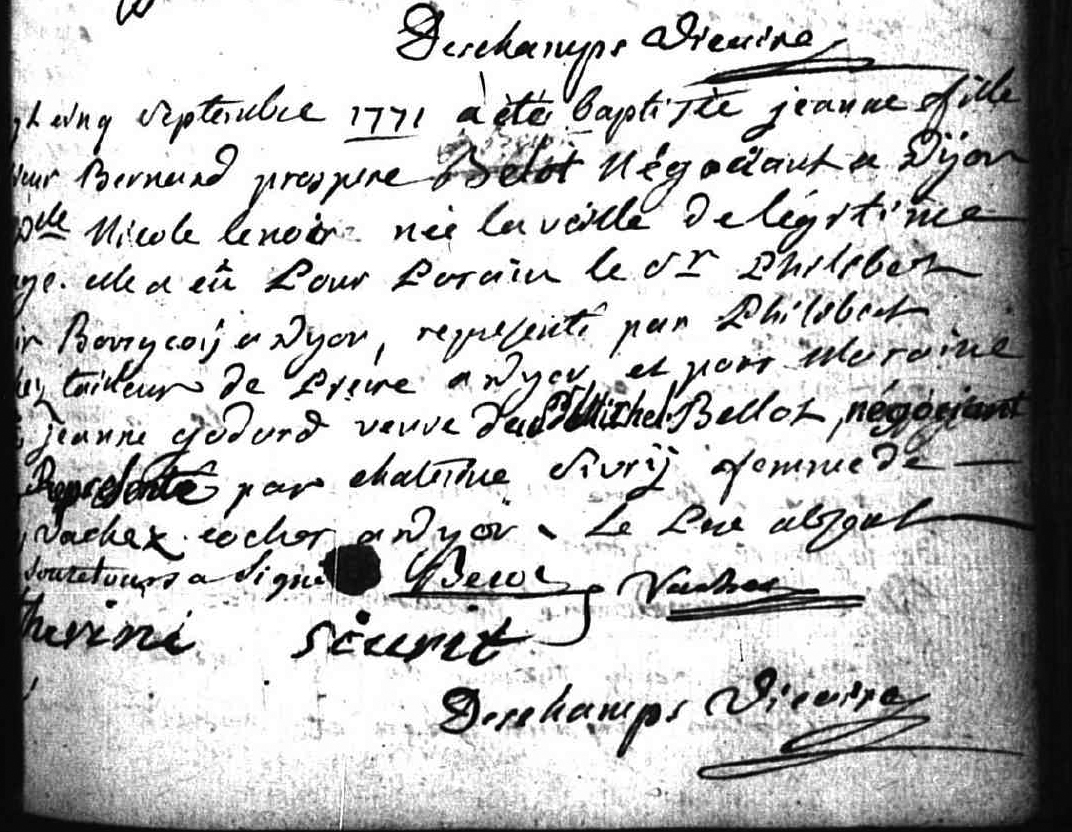 Deschamps Vicaire
cinq septembre 1771 a été baptisée jeanne fille
Bernard prospere Belot Négociant a Dijon
Dlle Nicole lenoir née la veille de légitime
elle a eû Pour Parain le Sr Philibert
Bourgeois a Dijon, representé par Philibert
tailleur de Pierre a Dijon, et pour Maraine
jeanne godard veuve de Michel Bellot, négociant
Representé par Catherine femme de
Vachez cocher a Dijon Le Pere absent
a signé
Belot Vachez
Deschamps Vicaire